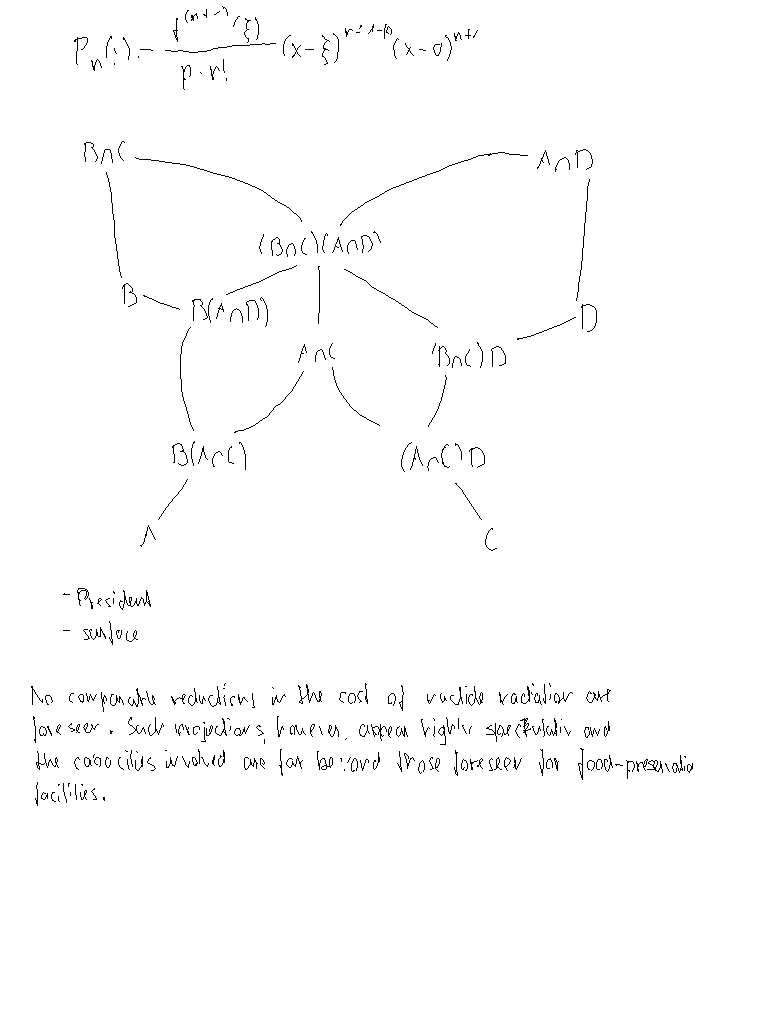 B∩C
A∩D
(B∩C)(A∩D)
B
B(A∩D)
D
A∩C
(B∩C)D
B(A∩C)
(A∩C)D
A
C
- President
- surface
No comparable reductions in the cost of nuclide radiation are
foreseen. Such projections, however, appear highly speculativ and
the capacities involved are far beyond those foreseen for food-preservatio
facilities.